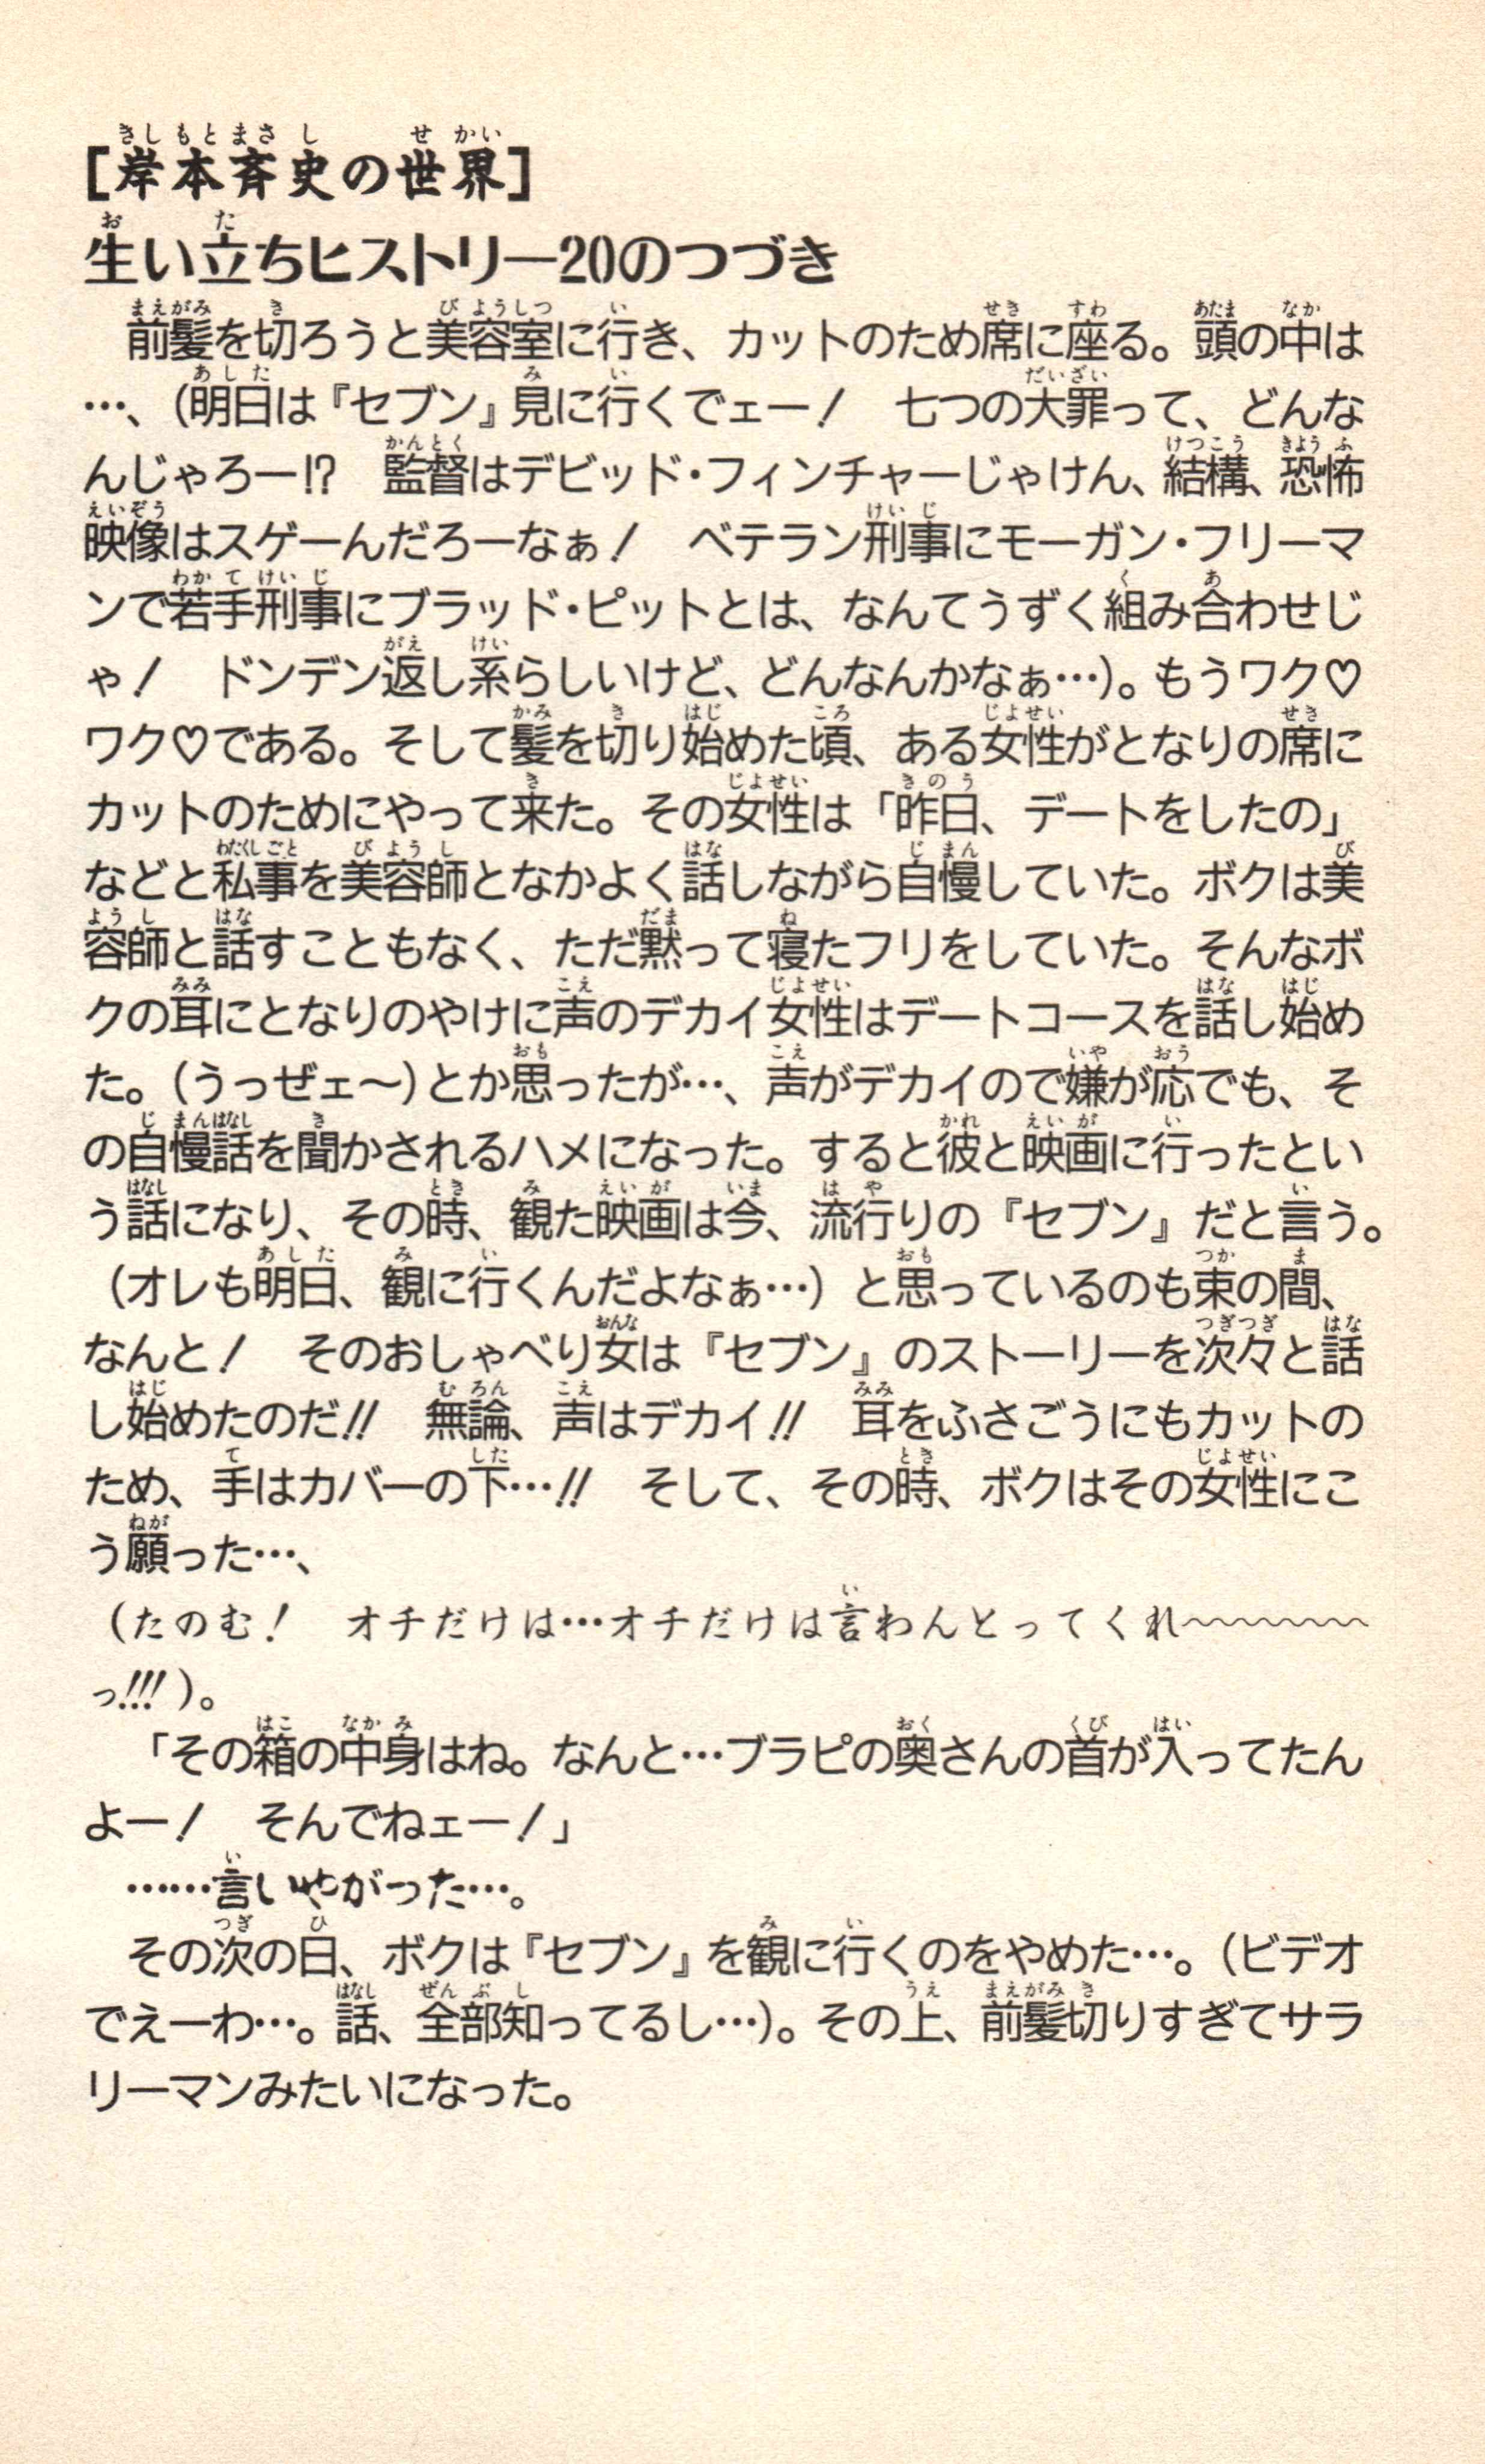 [岸本斉史の世界]
生い立ちヒストリー20のつづき
前髪を切ろうと美容室に行き、カットのため席に座る。頭の中は
…、(明日は『セブン』見に行くでェー! 七つの大罪って、どんな
んじゃろー!? 監督はデビッド・フィンチャーじゃけん、結構、恐怖
映像はスゲーんだろーなぁ! ベテラン刑事にモーガン・フリーマ
ンで若手刑事にブラッド・ピットとは、なんてうずく組み合わせじ
ゃ! ドンデン返し系らしいけど、どんなんかなぁ…)。もうワク♡
ワク♡である。そして髪を切り始めた頃、ある女性がとなりの席に
カットのためにやって来た。その女性は「昨日、デートをしたの」
などと私事を美容師となかよく話しながら自慢していた。ボクは美
容師と話すこともなく、ただ黙って寝たフリをしていた。そんなボ
クの耳にとなりのやけに声のデカイ女性はデートコースを話し始め
た。(うっぜェ〜)とか思ったが…、声がデカイので嫌が応でも、そ
の自慢話を聞かされるハメになった。すると彼と映画に行ったとい
う話になり、その時、観た映画は今、流行りの『セブン』だと言う。
(オレも明日、観に行くんだよなぁ…)と思っているのも束の間、
なんと! そのおしゃべり女は『セブン』のストーリーを次々と話
し始めたのだ!! 無論、声はデカイ!! 耳をふさごうにもカットの
ため、手はカバーの下…!! そして、その時、ボクはその女性にこ
う願った…、
(たのむ! オチだけは…オチだけは言わんとってくれ〜〜〜〜〜
っ!!!)。
「その箱の中身はね。なんと…ブラピの奥さんの首が入ってたん
よー! そんでねェー!」
……言いやがった…。
その次の日、ボクは『セブン』を観に行くのをやめた…。(ビデオ
でえーわ…。話、全部知ってるし…)。その上、前髪切りすぎてサラ
リーマンみたいになった。